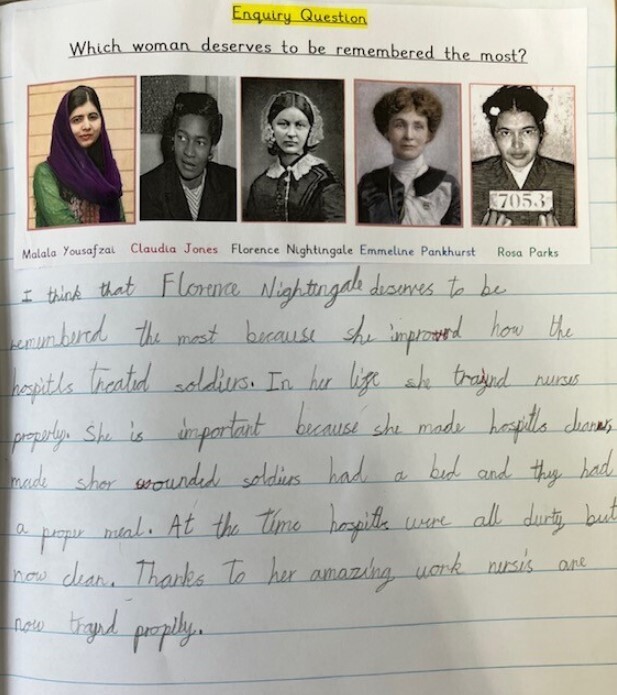 Enquiry Question
Which woman deserves to be remembered the most?
7053
Malala Yousafzai Claudia Jones Florence Nightingale Emmeline Pankhurst Rosa Parks
I think that Florence Nightingale deserves to be
remembered the most because she improved how the
hospitls treated soldiers. In her life she traynd nurses
properly. She is important because she made hospitls cleaner,
made shor wounded soldiers had a bed and they had
a proper meal. At the time hospitls were all durty but
now clean. Thanks to her amazing work nersis are
now traynd propily.